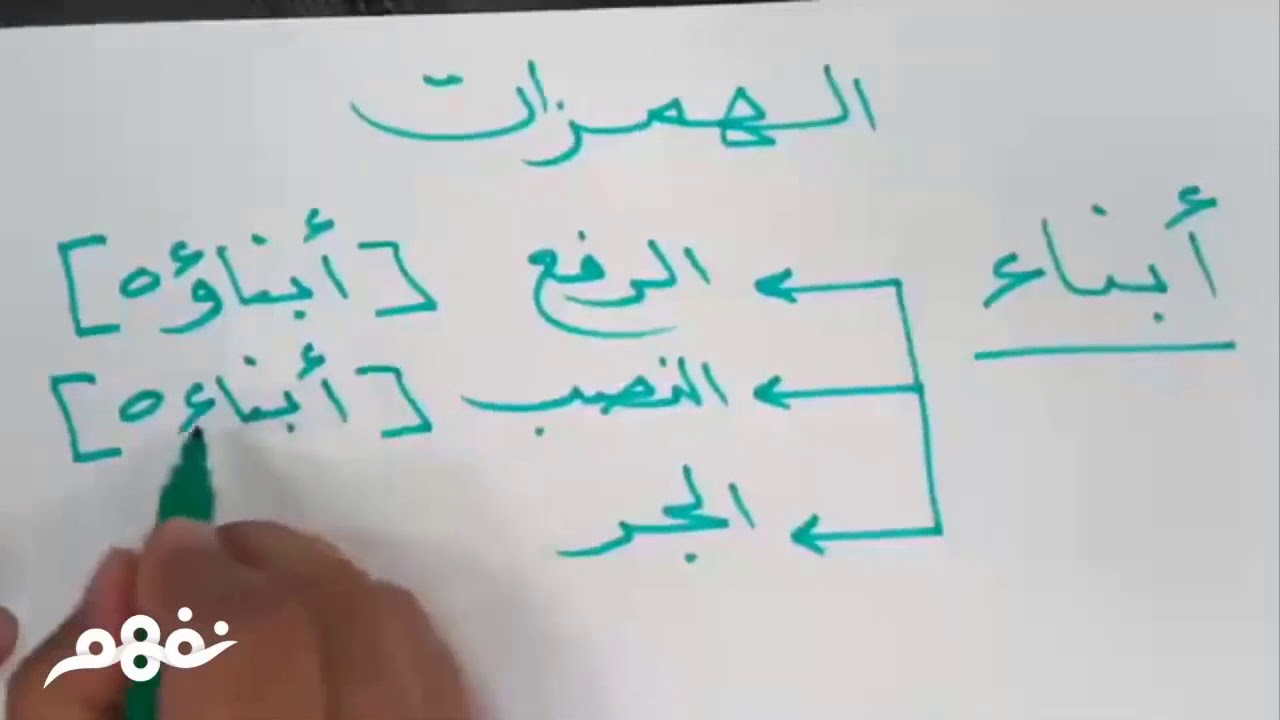 الهمزات
أبناء
الرفع [أبناؤه]
النصب [أبناءه]
الجر
نفهم